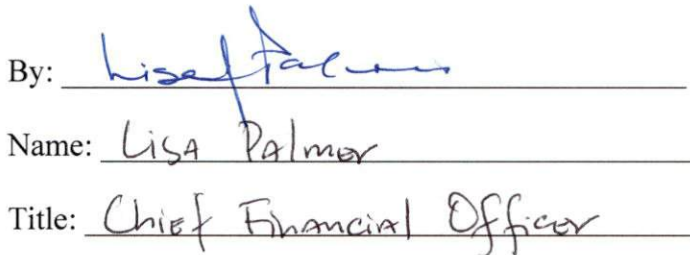 By: Lisa Palmer
Name: Lisa Palmer
Title: Chief Financial Officer